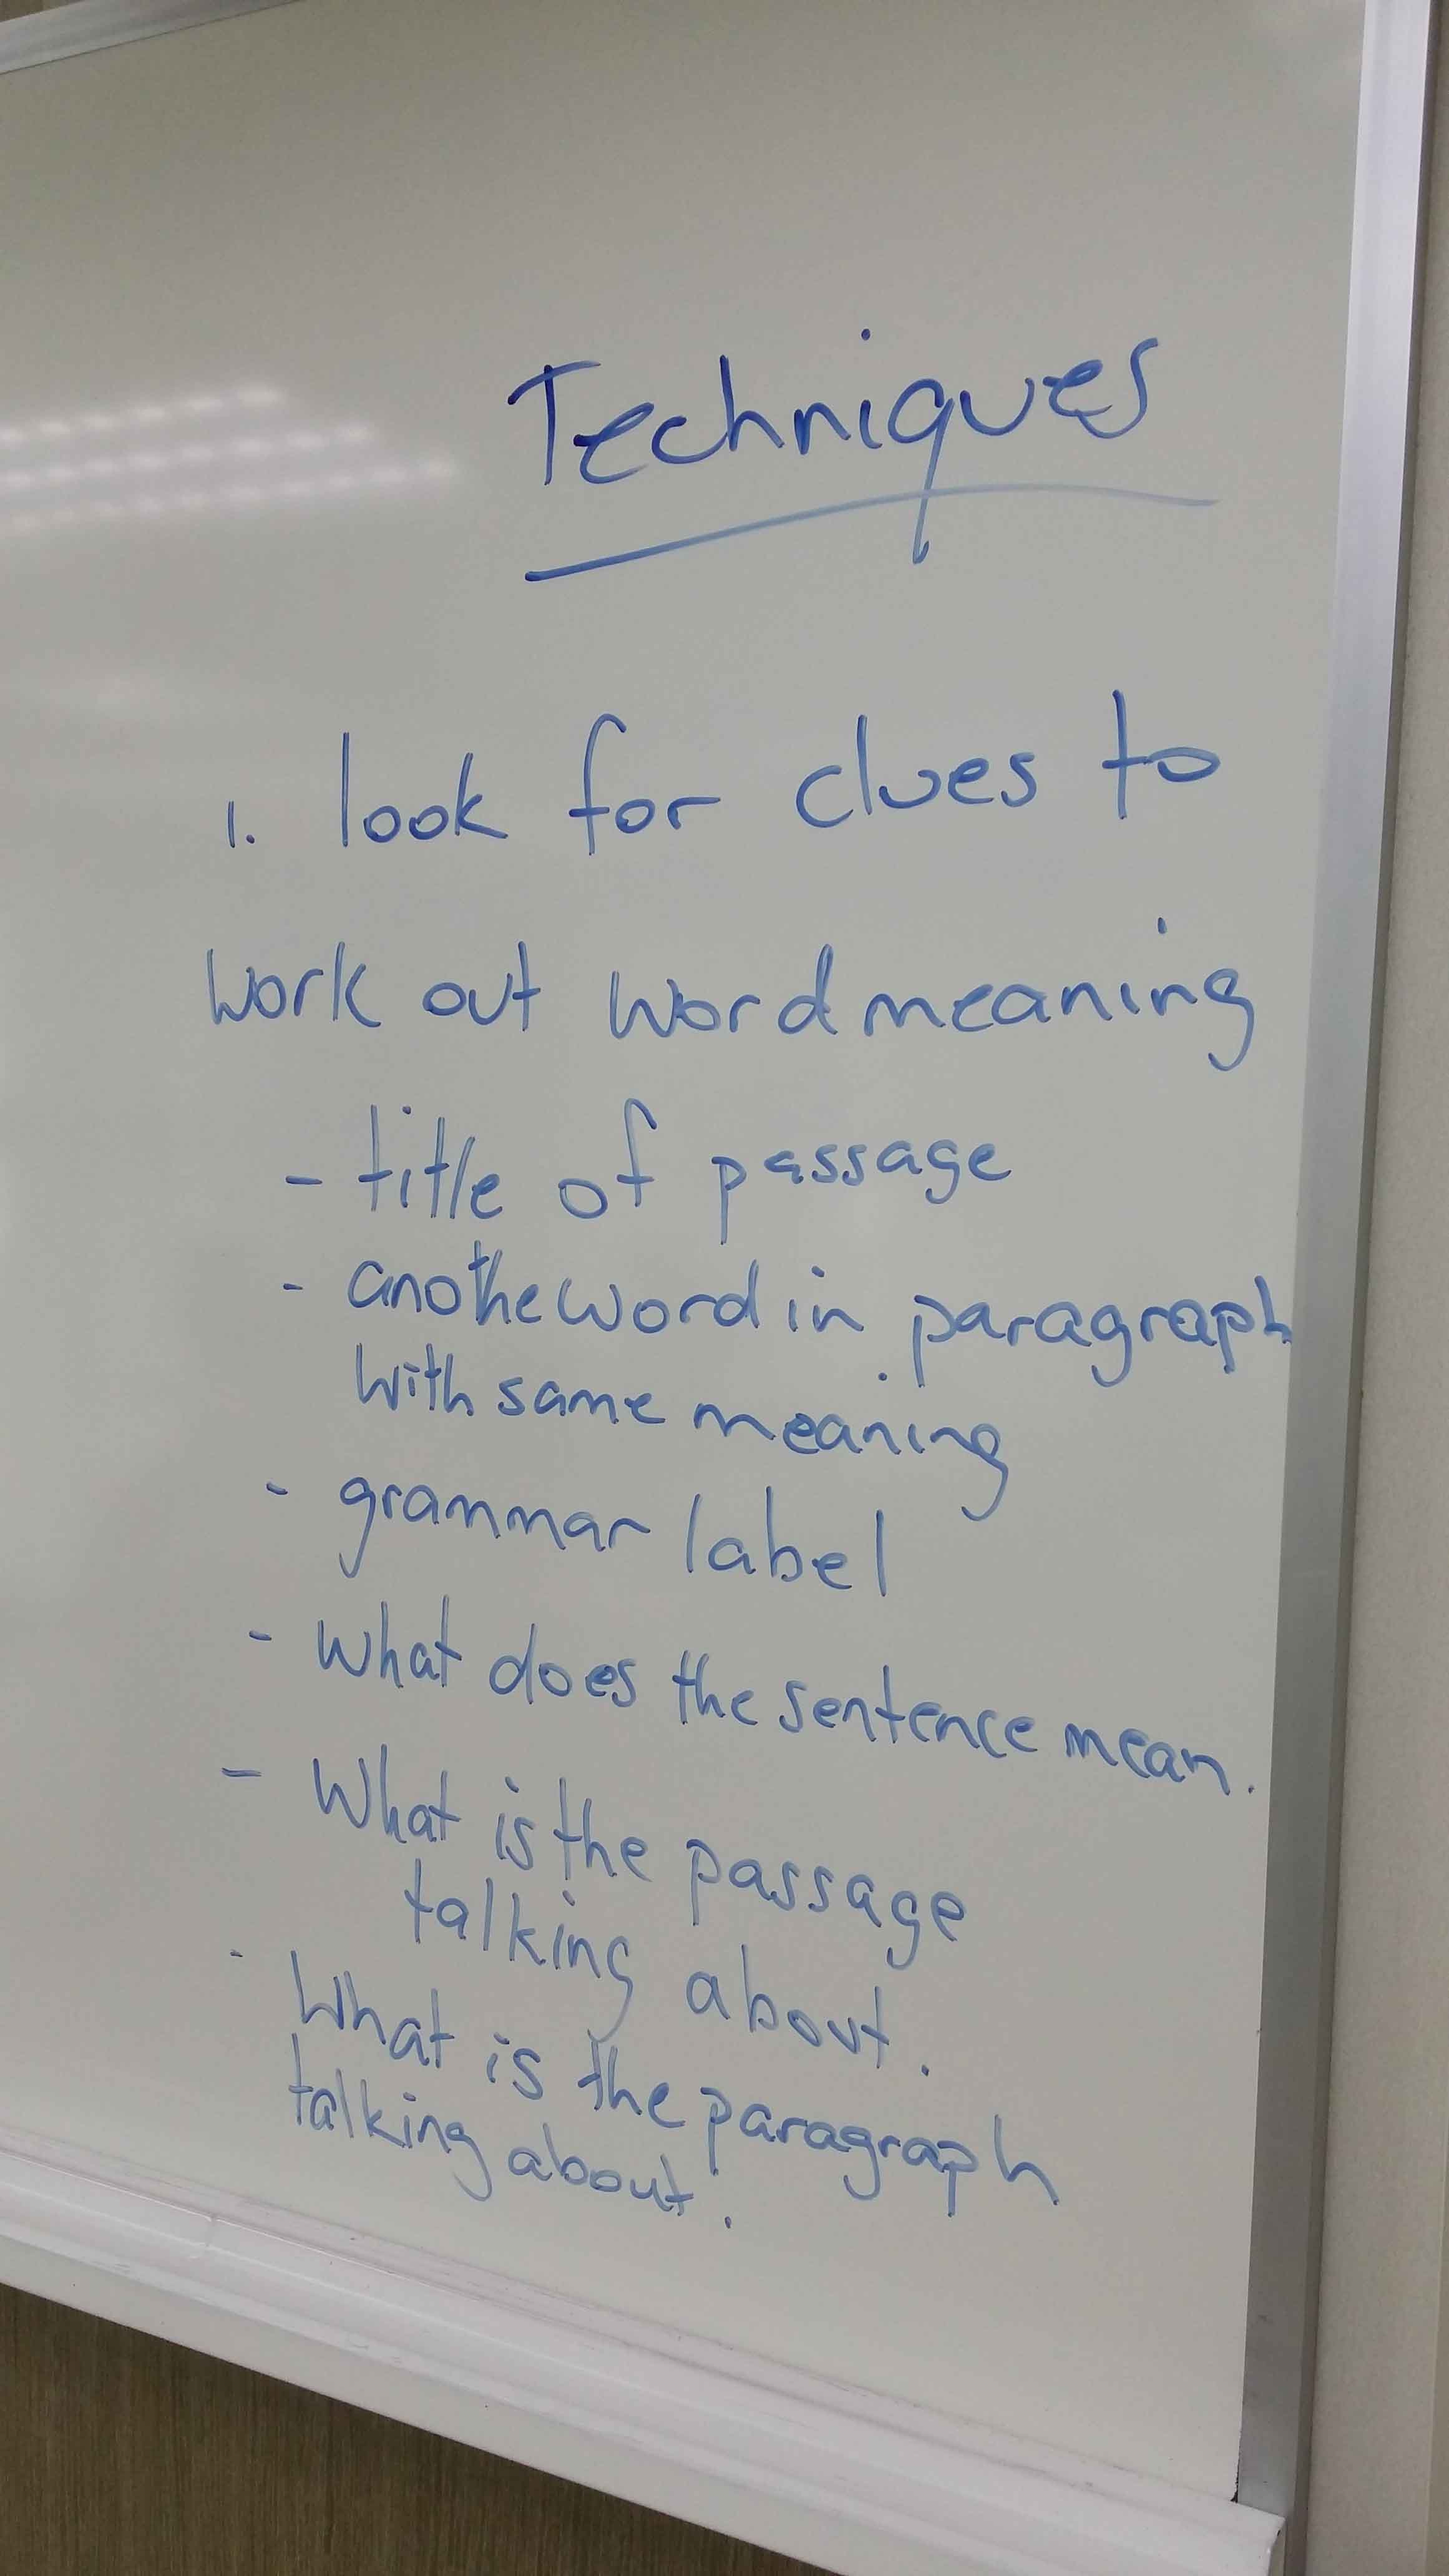 Techniques
1. look for clues to
work out word meaning
- title of passage
- anothe word in paragraph
with same meaning
- grammar label
- What does the sentence mean.
- What is the passage
talking about.
- What is the paragraph
talking about.